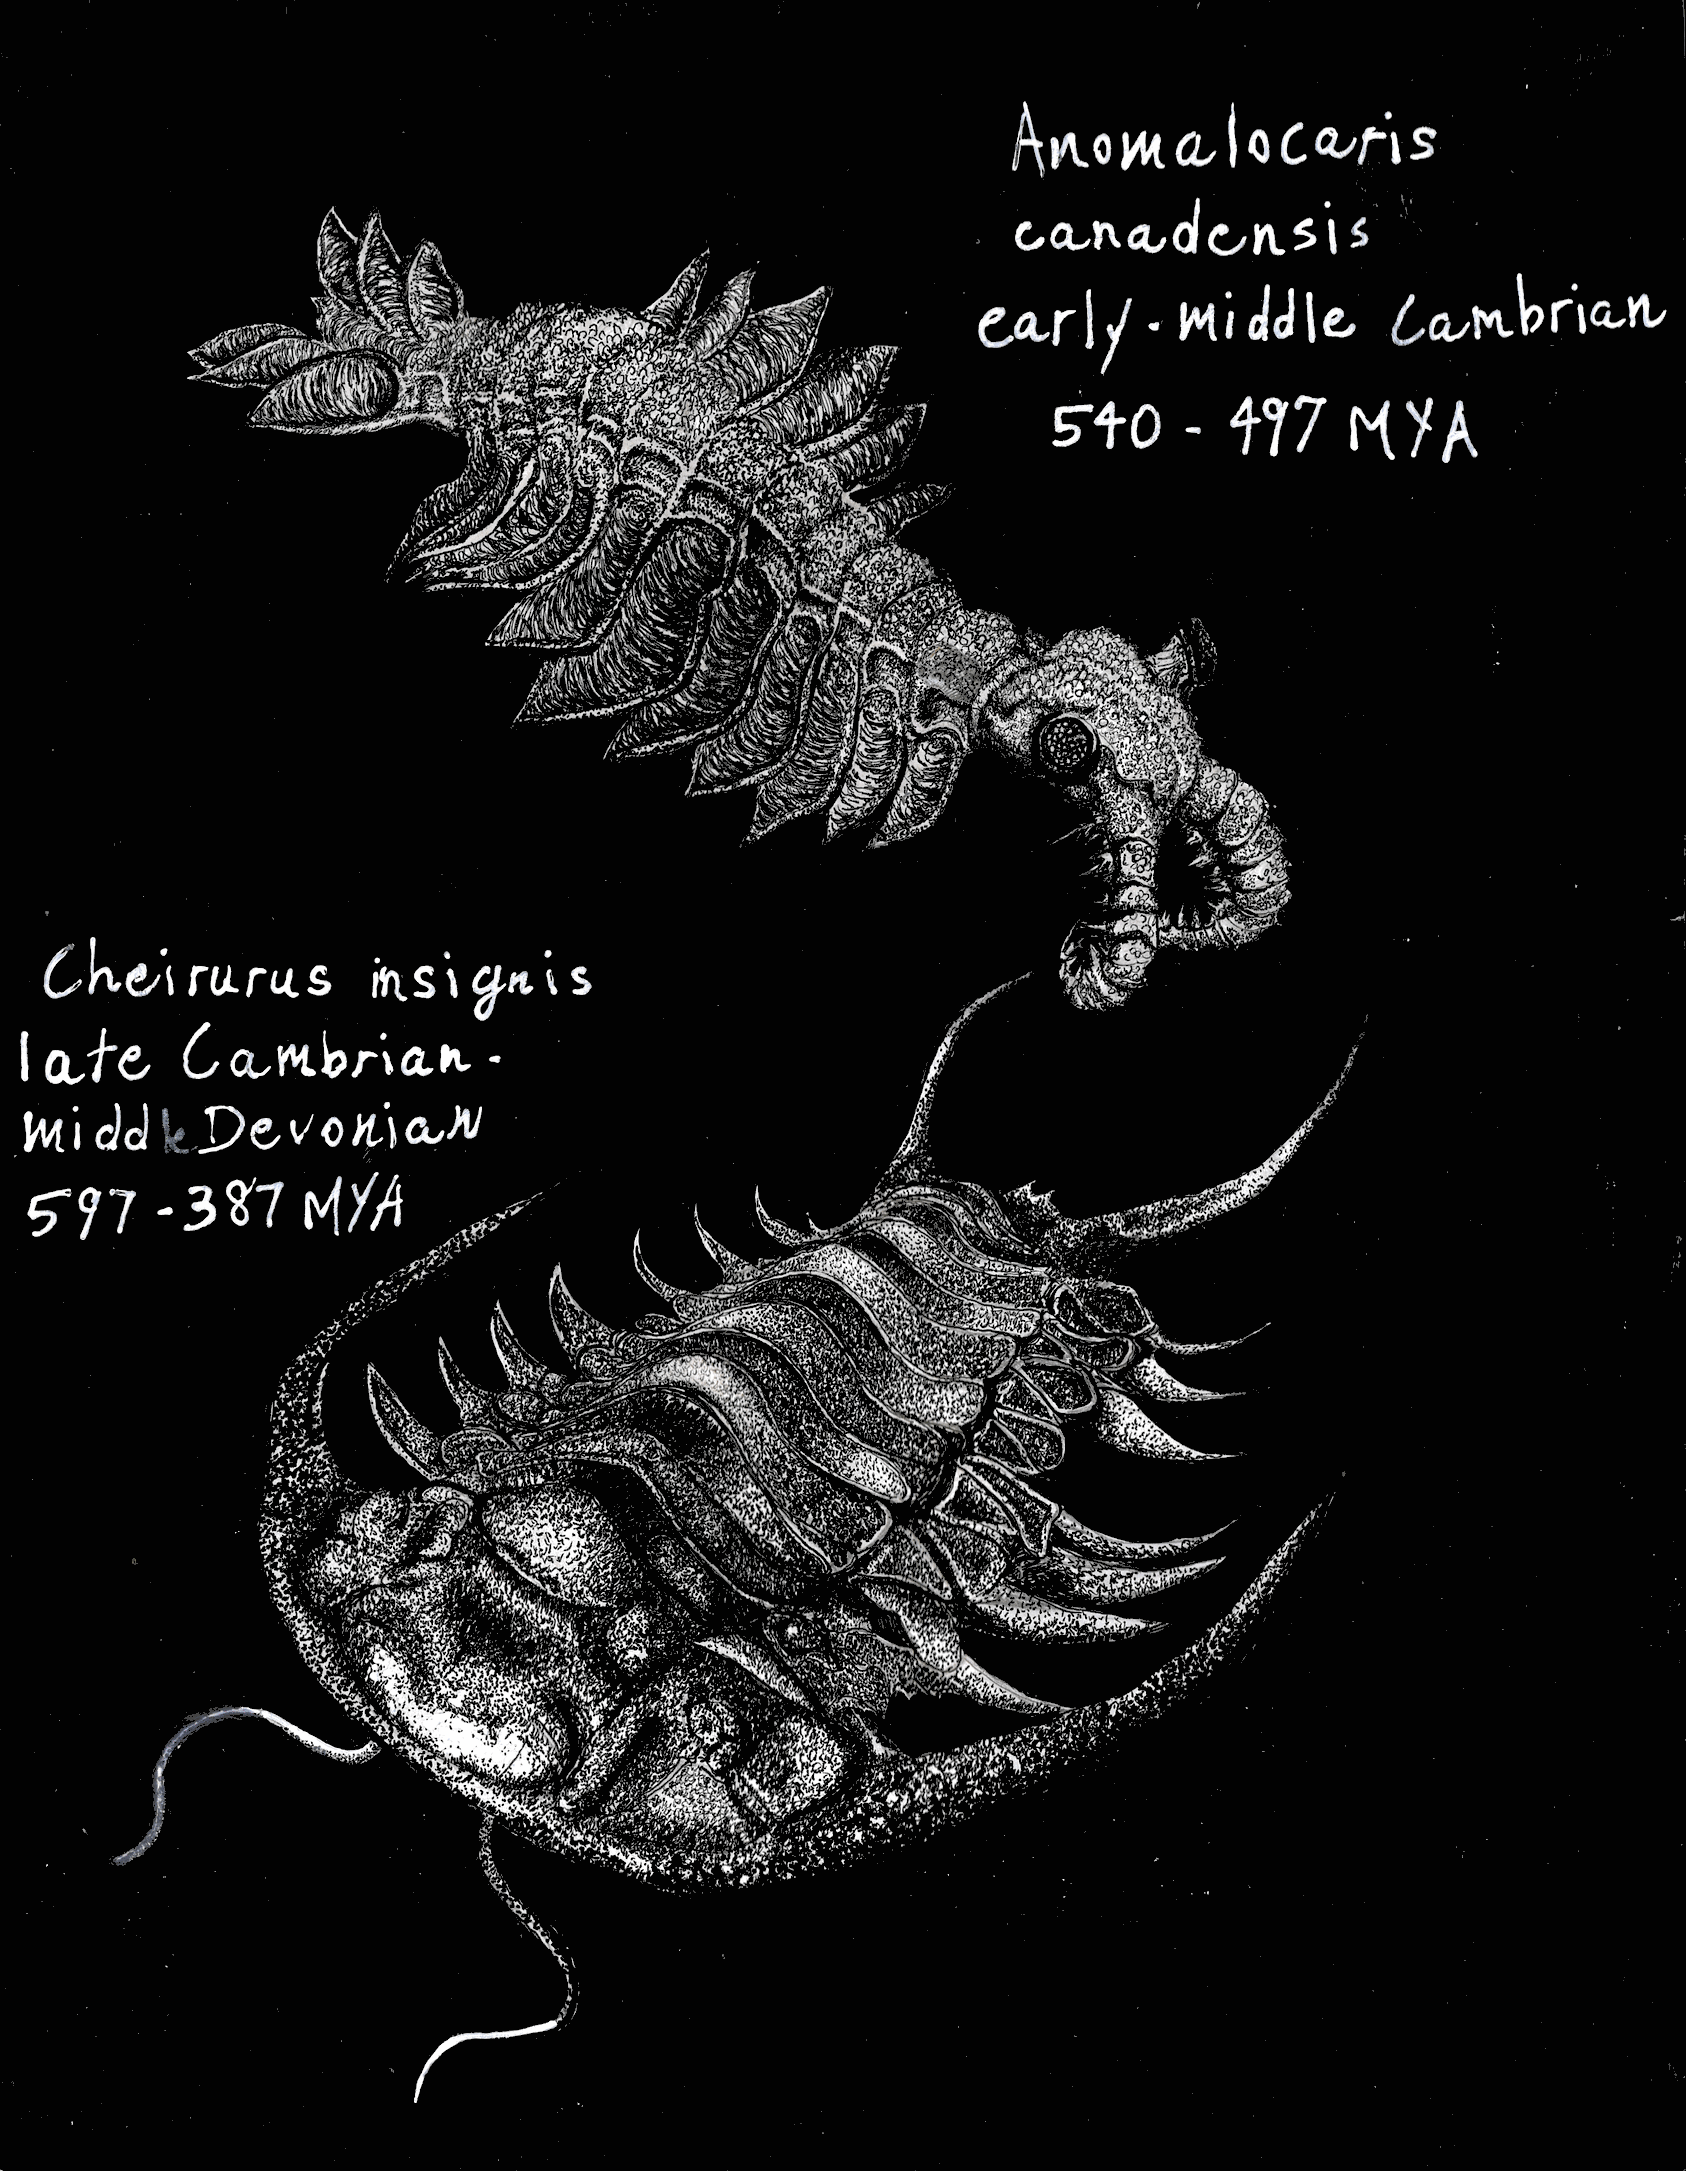 Anomalocaris
canadensis
early-middle Cambrian
540 - 497 MYA
Cheirurus insignis
late Cambrian-
middle Devonian
597-387 MYA